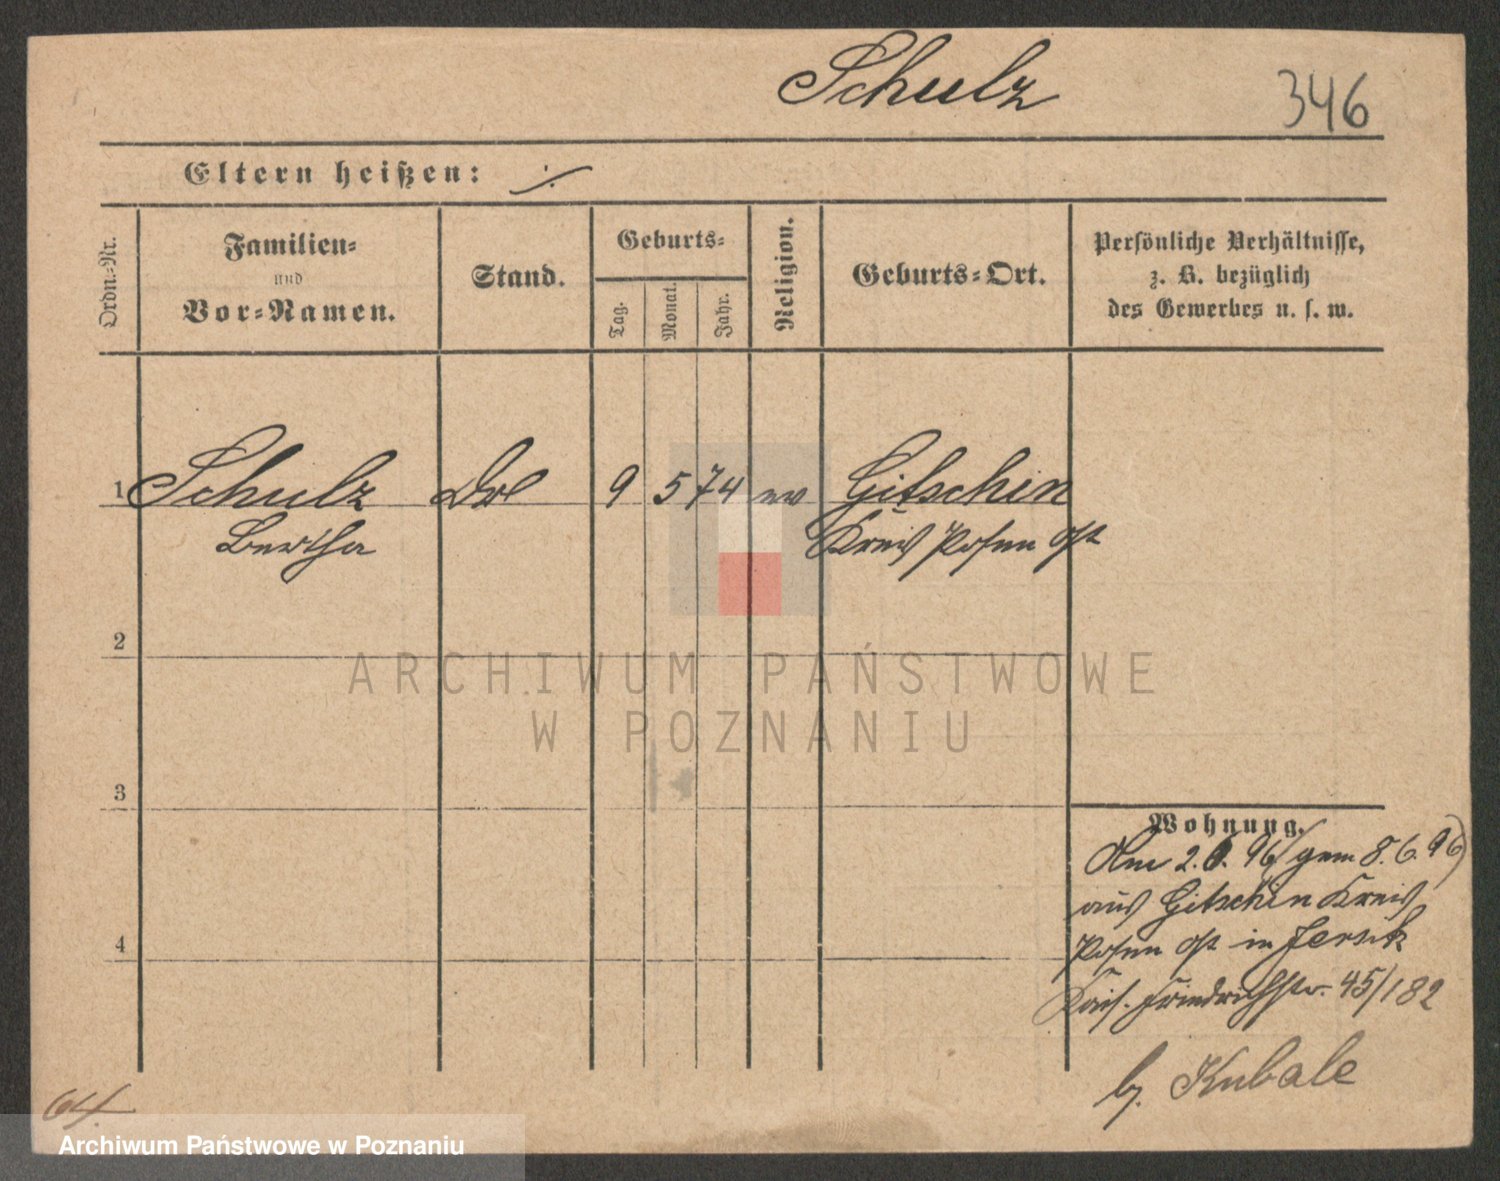 Schulz
346
Eltern heißen: ·/.
Ordn.-Nr.
Familien-
und
Vor-Namen.
Stand.
Geburts-
Tag.
Monat.
Jahr.
Religion.
Geburts-Ort.
Persönliche Verhältnisse,
z. B. bezüglich
des Gewerbes u. s. w.
1 Schulz 9 5 74 ev Gitschin
Bertha Kreis Posen Ost
2
3
4
ARCHIWUM PAŃSTWOWE
W POZNANIU
Wohnung.
Am 2.6.96 (gem 8.6.96)
aus Gitschin Kreis
Posen Ost in Jersitz
Kais. Friedrichstr. 45/182
b. Kubale
64.
Archiwum Państwowe w Poznaniu